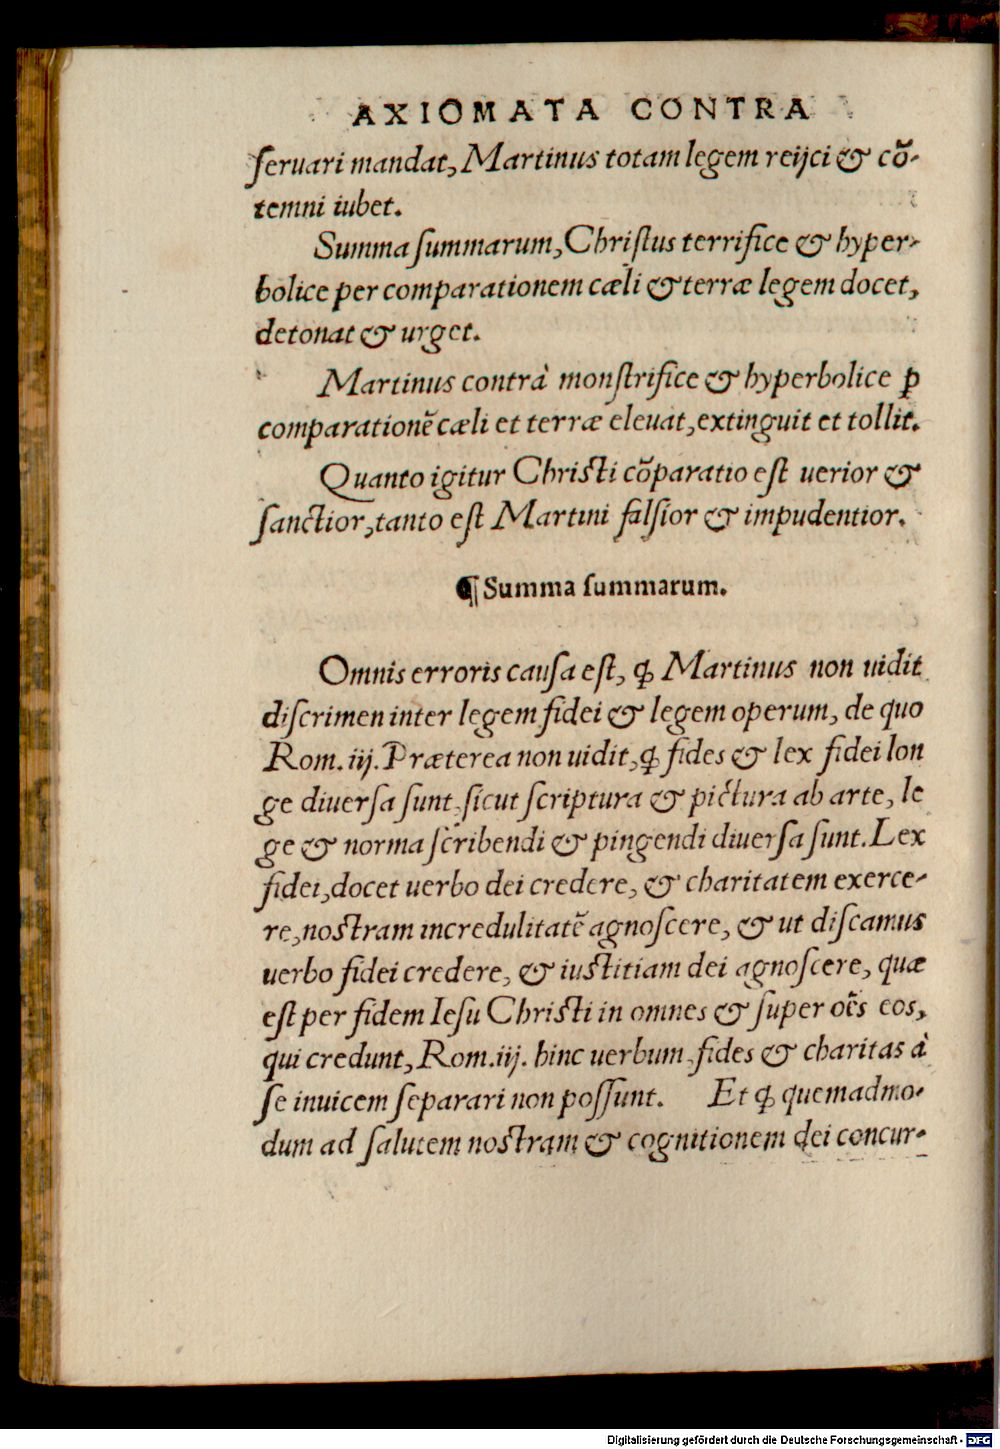 AXIOMATA CONTRA
ſeruari mandat, Martinus totam legem reijci & cõ-
temni iubet.
Summa ſummarum, Chriſtus terrifice & hyper-
bolice per comparationem cæli & terræ legem docet,
detonat & urget.
Martinus contrà monſtrifice & hyperbolice ꝑ
comparationẽ cæli et terræ eleuat, extinguit et tollit.
Quanto igitur Chriſti cõparatio eſt uerior &
ſanctior, tanto eſt Martini falſior & impudentior.
¶ Summa ſummarum.
Omnis erroris cauſa eſt, ꝙ Martinus non uidit
diſcrimen inter legem fidei & legem operum, de quo
Rom. iij. Præterea non uidit, ꝙ fides & lex fidei lon
ge diuerſa ſunt, ſicut ſcriptura & pictura ab arte, le
ge & norma ſcribendi & pingendi diuerſa ſunt. Lex
fidei, docet uerbo dei credere, & charitatem exerce-
re, noſtram incredulitatẽ agnoſcere, & ut diſcamus
uerbo fidei credere, & iuſtitiam dei agnoſcere, quæ
eſt per fidem Ieſu Chriſti in omnes & ſuper oẽs eos,
qui credunt, Rom. iij. hinc uerbum, fides & charitas à
ſe inuicem ſeparari non poſſunt. Et ꝙ quemadmo-
dum ad ſalutem noſtram & cognitionem dei concur-
Digitalisierung gefördert durch die Deutsche Forschungsgemeinschaft - DFG